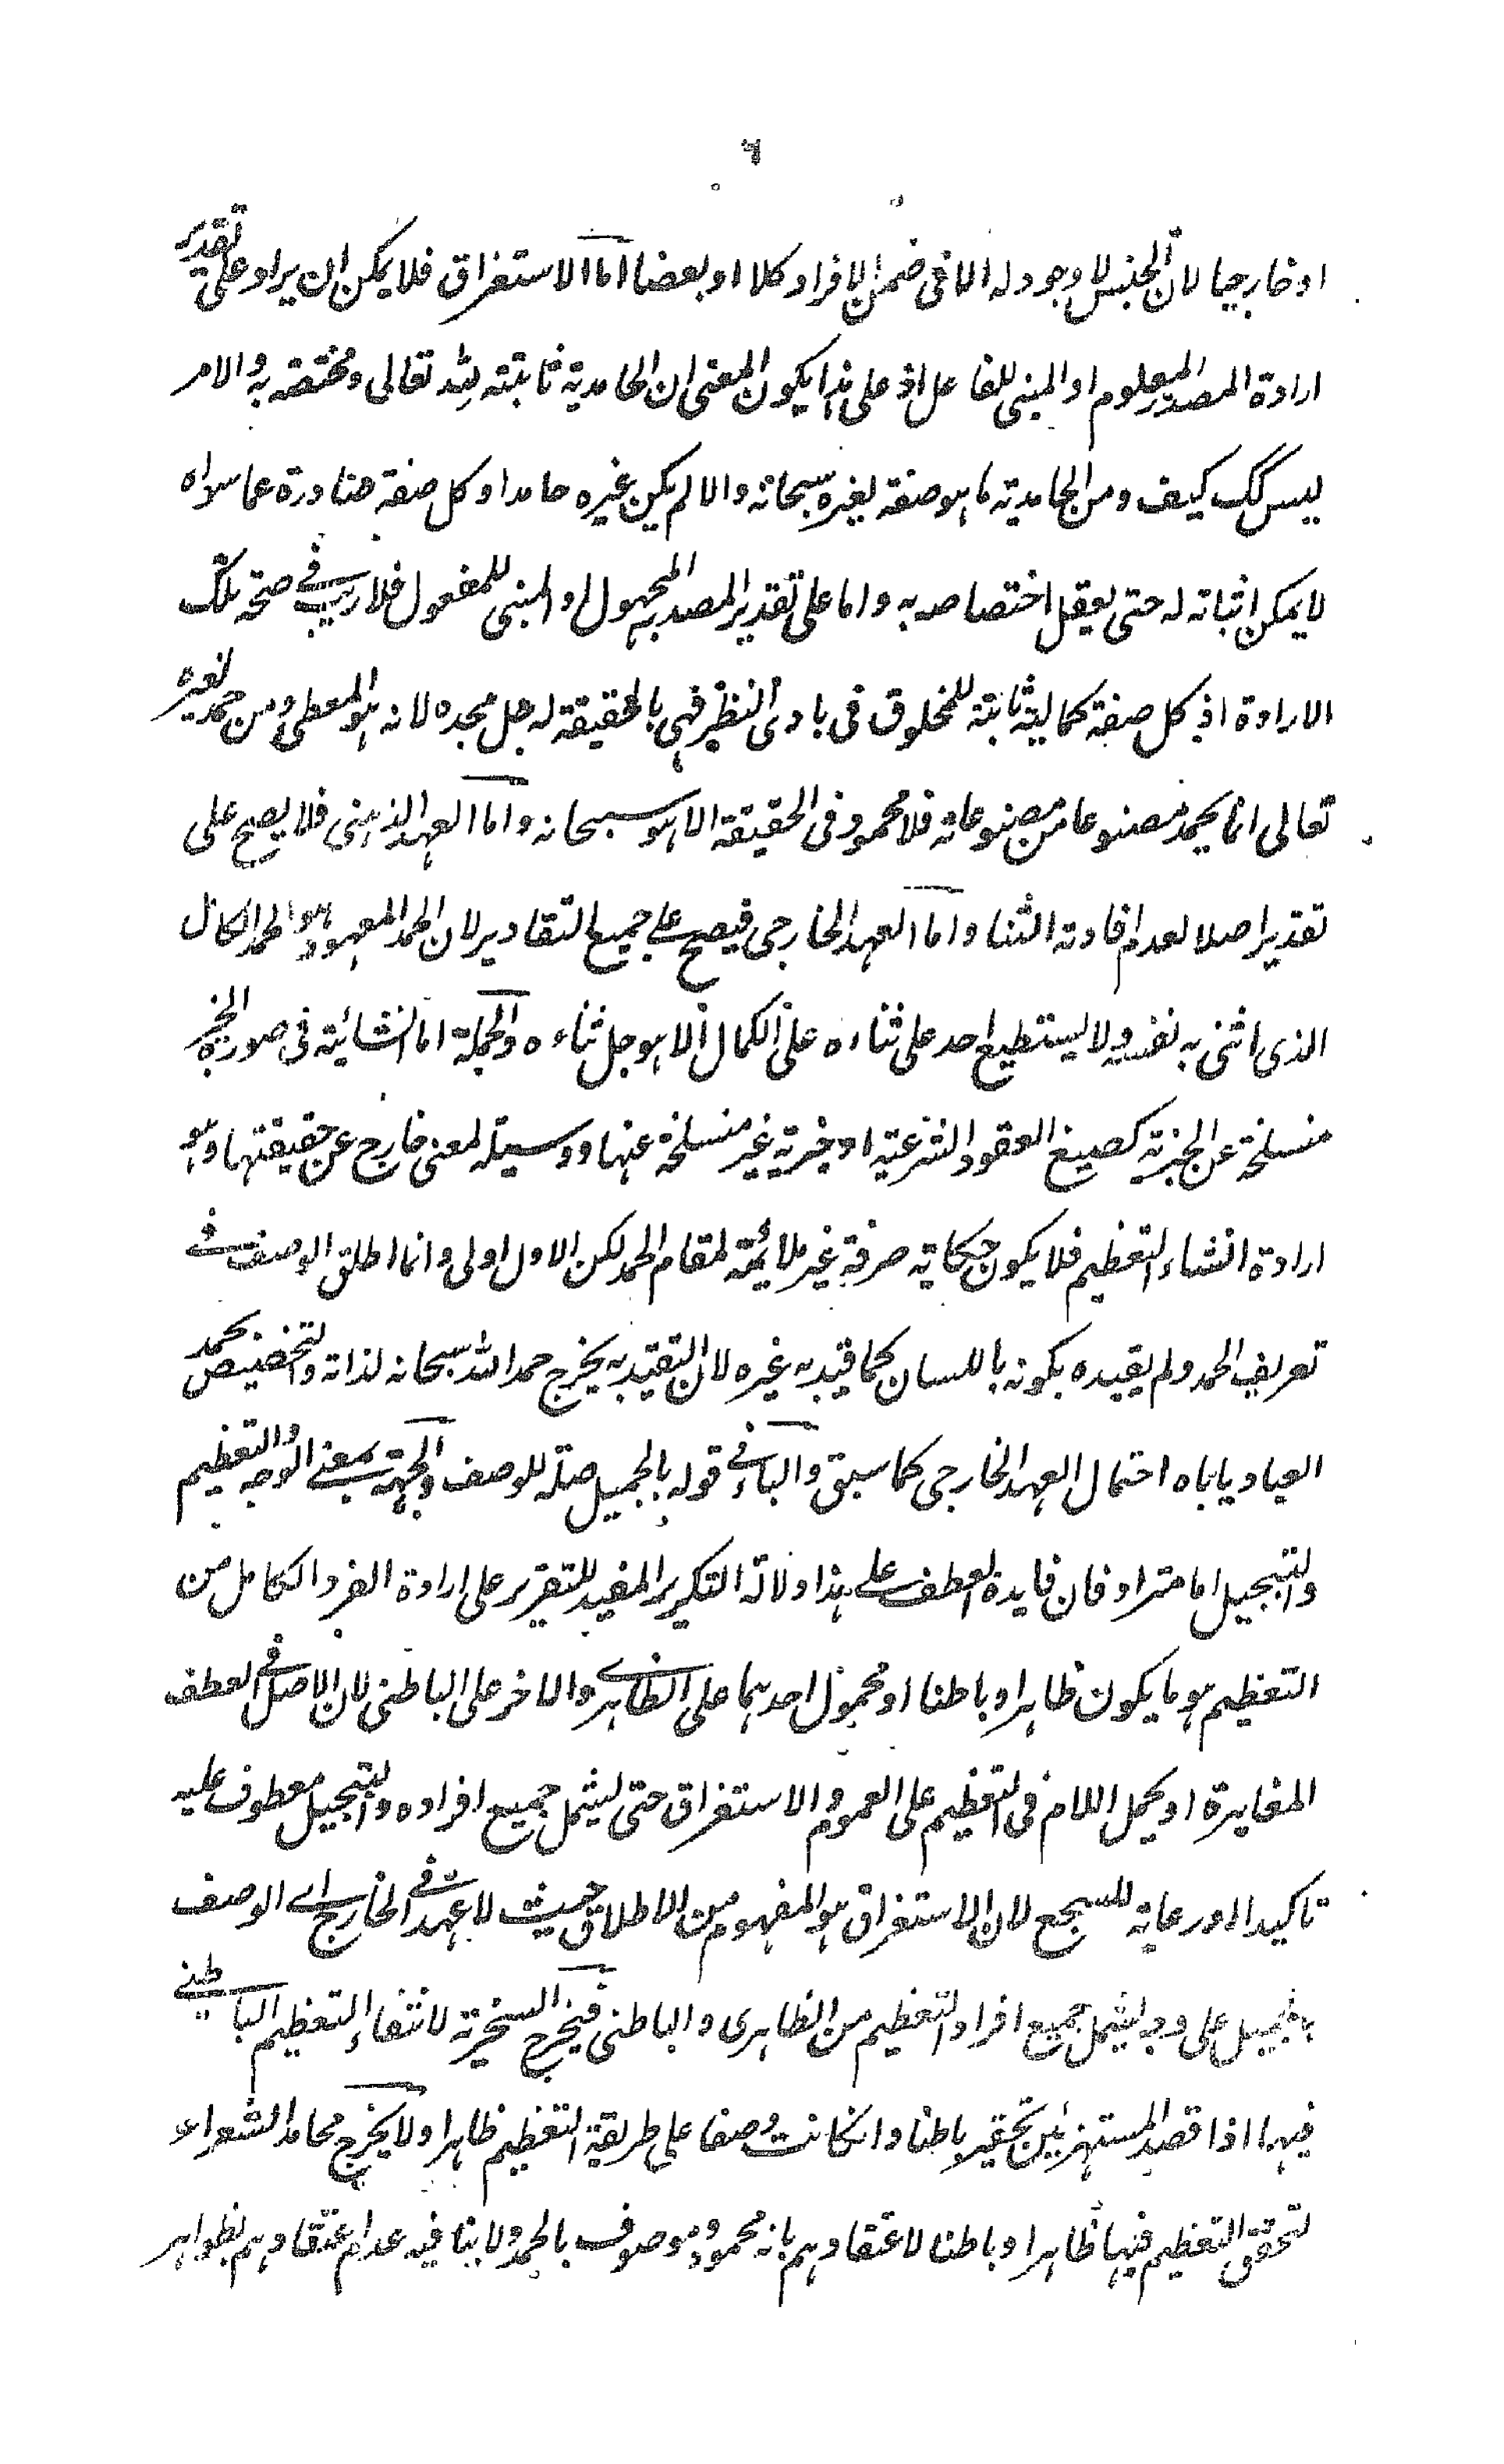 ٦
او خارجيا لان الجنس لا وجود له الا فى ضمن الافراد كلا او بعضا اما الاستغراق فلا يمكن ان يراد على تقدير
ارادة المصدر المعلوم او المبنى للفاعل اذ على هذا يكون المعنى ان الحامدية ثابتة لله تعالى ومختصة به والامر
ليس كك كيف ومن الحامدية ما هو صفة لغيره سبحانه والا لم يكن غيره حامدا وكل صفة صادرة عما سواه
لا يمكن اثباته له حتى يعقل اختصاصه به واما على تقدير المصدر المجهول او المبنى للمفعول فلا ريب فى صحة تلك
الارادة اذ كل صفة كمالية ثابتة للمخلوق فى بادى النظر فهى بالحقيقة له جل مجده لانه هو المعطى ومن حمد لغيره
تعالى انما يحمد مصنوعا من مصنوعاته فلا محمود فى الحقيقة الا هو سبحانه واما العهد الذهنى فلا يصح على
تقدير اصلا لعدم افادته الثنا واما العهد الخارجى فيصح على جميع التقادير لان الحمد المعهود هو الحمد الكامل
الذى اثنى به نفسه ولا يستطيع احد على ثناءه على الكمال الا هو جل ثناءه والجملة اما انشائية فى صورة الخبر
منسلخة عن الخبرية كصيغ العقود الشرعية او خبرية غير منسلخة عنها ووسيلة لمعنى خارج عن حقيقتها وهو
ارادة انشاء التعظيم فلا يكون حكاية صرفة غير ملائمة لمقام الحمد لكن الاول اولى وانما اطلق الوصف فى
تعريف الحمد ولم يقيده بكونه باللسان كما قيد به غيره لان التقيد به يخرج حمد الله سبحانه لذاته والتخصيص بحمد
العباد ياباه احتمال العهد الخارجى كما سبق والباء فى قوله بالجميل صلة للوصف والجهة بمعنى الوجه والتعظيم
والتبجيل اما مترادفان فايدة العطف على هذا دلالة التكرير المفيد للتقرير على ارادة الفرد الكامل من
التعظيم هو ما يكون ظاهرا وباطنا او محمول احدهما على الظاهرى والاخر على الباطنى لان الاصل فى العطف
المغايرة او يحمل اللام فى التعظيم على العموم والاستغراق حتى يشمل جميع افراده والتبجيل معطوف عليه
تاكيدا او رعاية للسجع لان الاستغراق هو المفهوم من الاطلاق حيث لا عهد فى الخارج اے الوصف
بالجميل على وجه يشمل جميع افراد التعظيم من الظاهرى والباطنى فيخرج السخرية لانتفاء التعظيم الباطنى
فيها اذا قصد المستهزئين تحقير باطنا وانكانت وصفا على طريقة التعظيم ظاهرا ولا يخرج محامد الشعراء
لتحقق التعظيم فيها ظاهرا وباطنا لاعتقادهم بانه محمود وموصوف بالحمد ولا ينافيه عدم اعتقادهم بظواهر